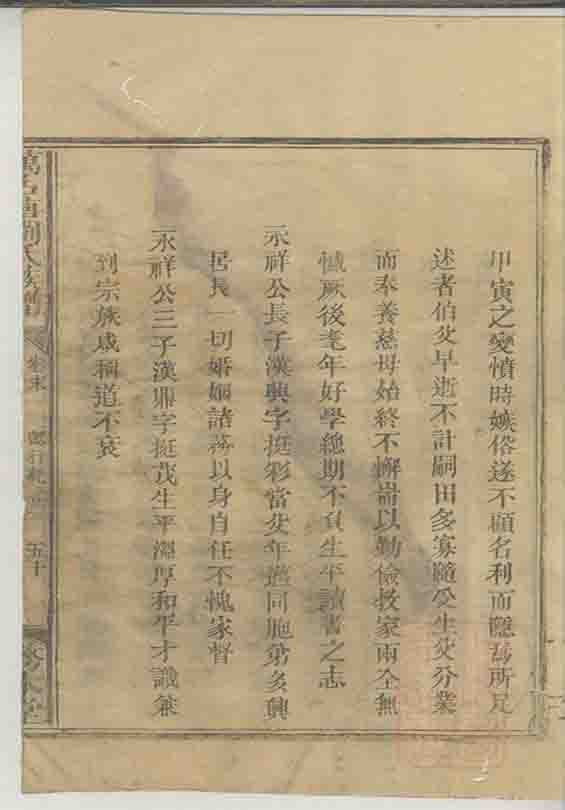 甲寅之變憤時嫉俗遂不顧名利而隱焉所足
述者伯父早逝不計嗣田多寡隨受生父分業
而奉養慈母始終不懈耑以勤儉教家兩全無
憾厥後耄年好學總期不負生平讀書之志
永祥公長子漢興字挺彩當父年邁同胞弟多興
居長一切婚姻諸務以身自任不愧家督
永祥公三子漢鼎字挺茂生平渾厚和平才識兼
到宗族咸稱道不衰
劉氏族譜
卷末
五十